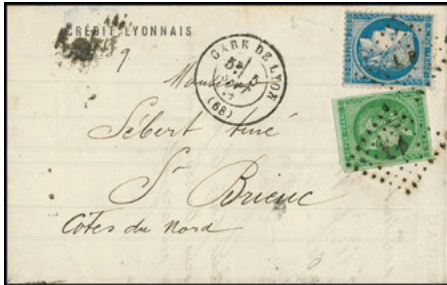 CRÉDIT LYONNAIS
GARE DE LYON
5E/
(68)
9
Monsieur
Sébert aîné
St Brieuc
Côtes du Nord